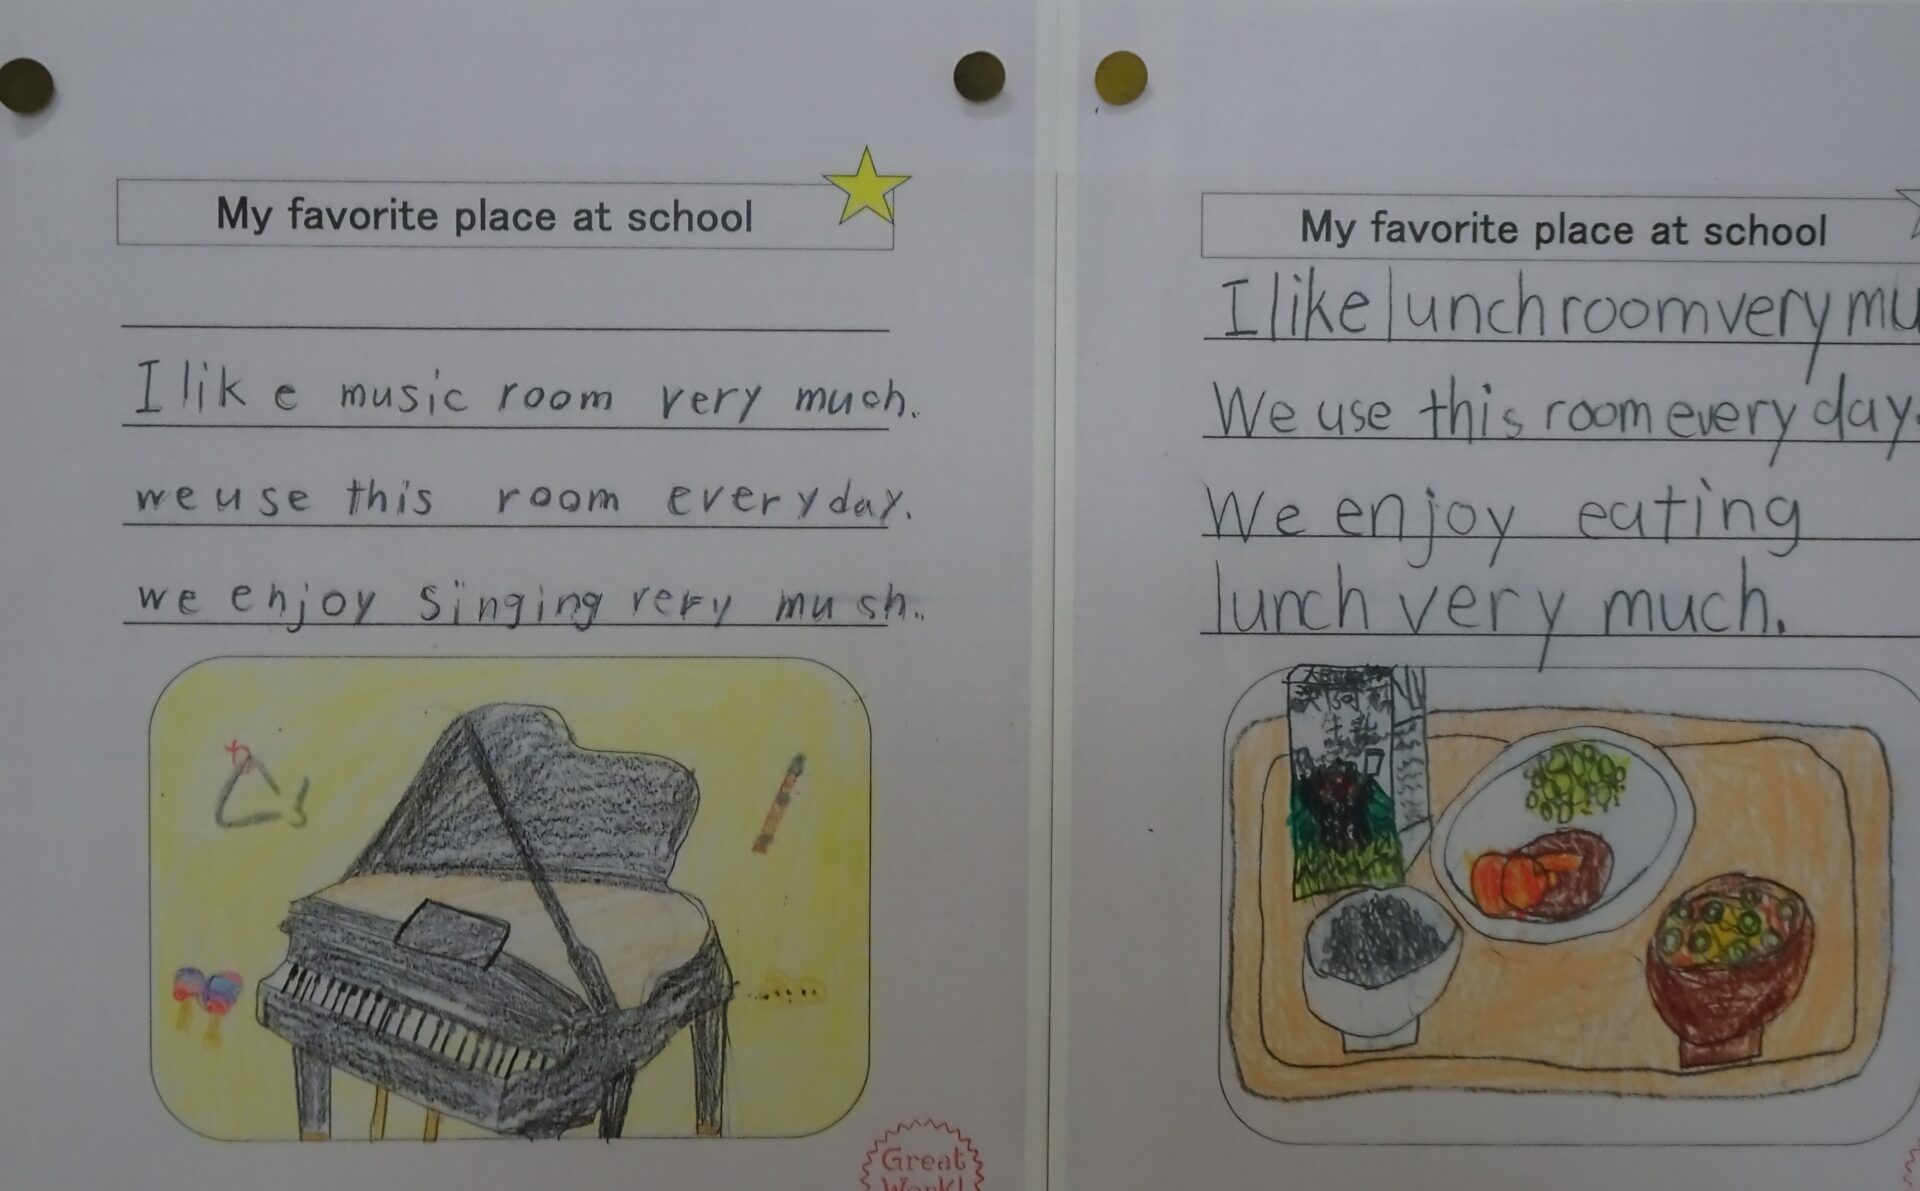 My favorite place at school
I like music room very much.
we use this room everyday.
we enjoy singing very mush.
Great
Work!
My favorite place at school
I like lunch room very mu
We use this room every day.
We enjoy eating
lunch very much.